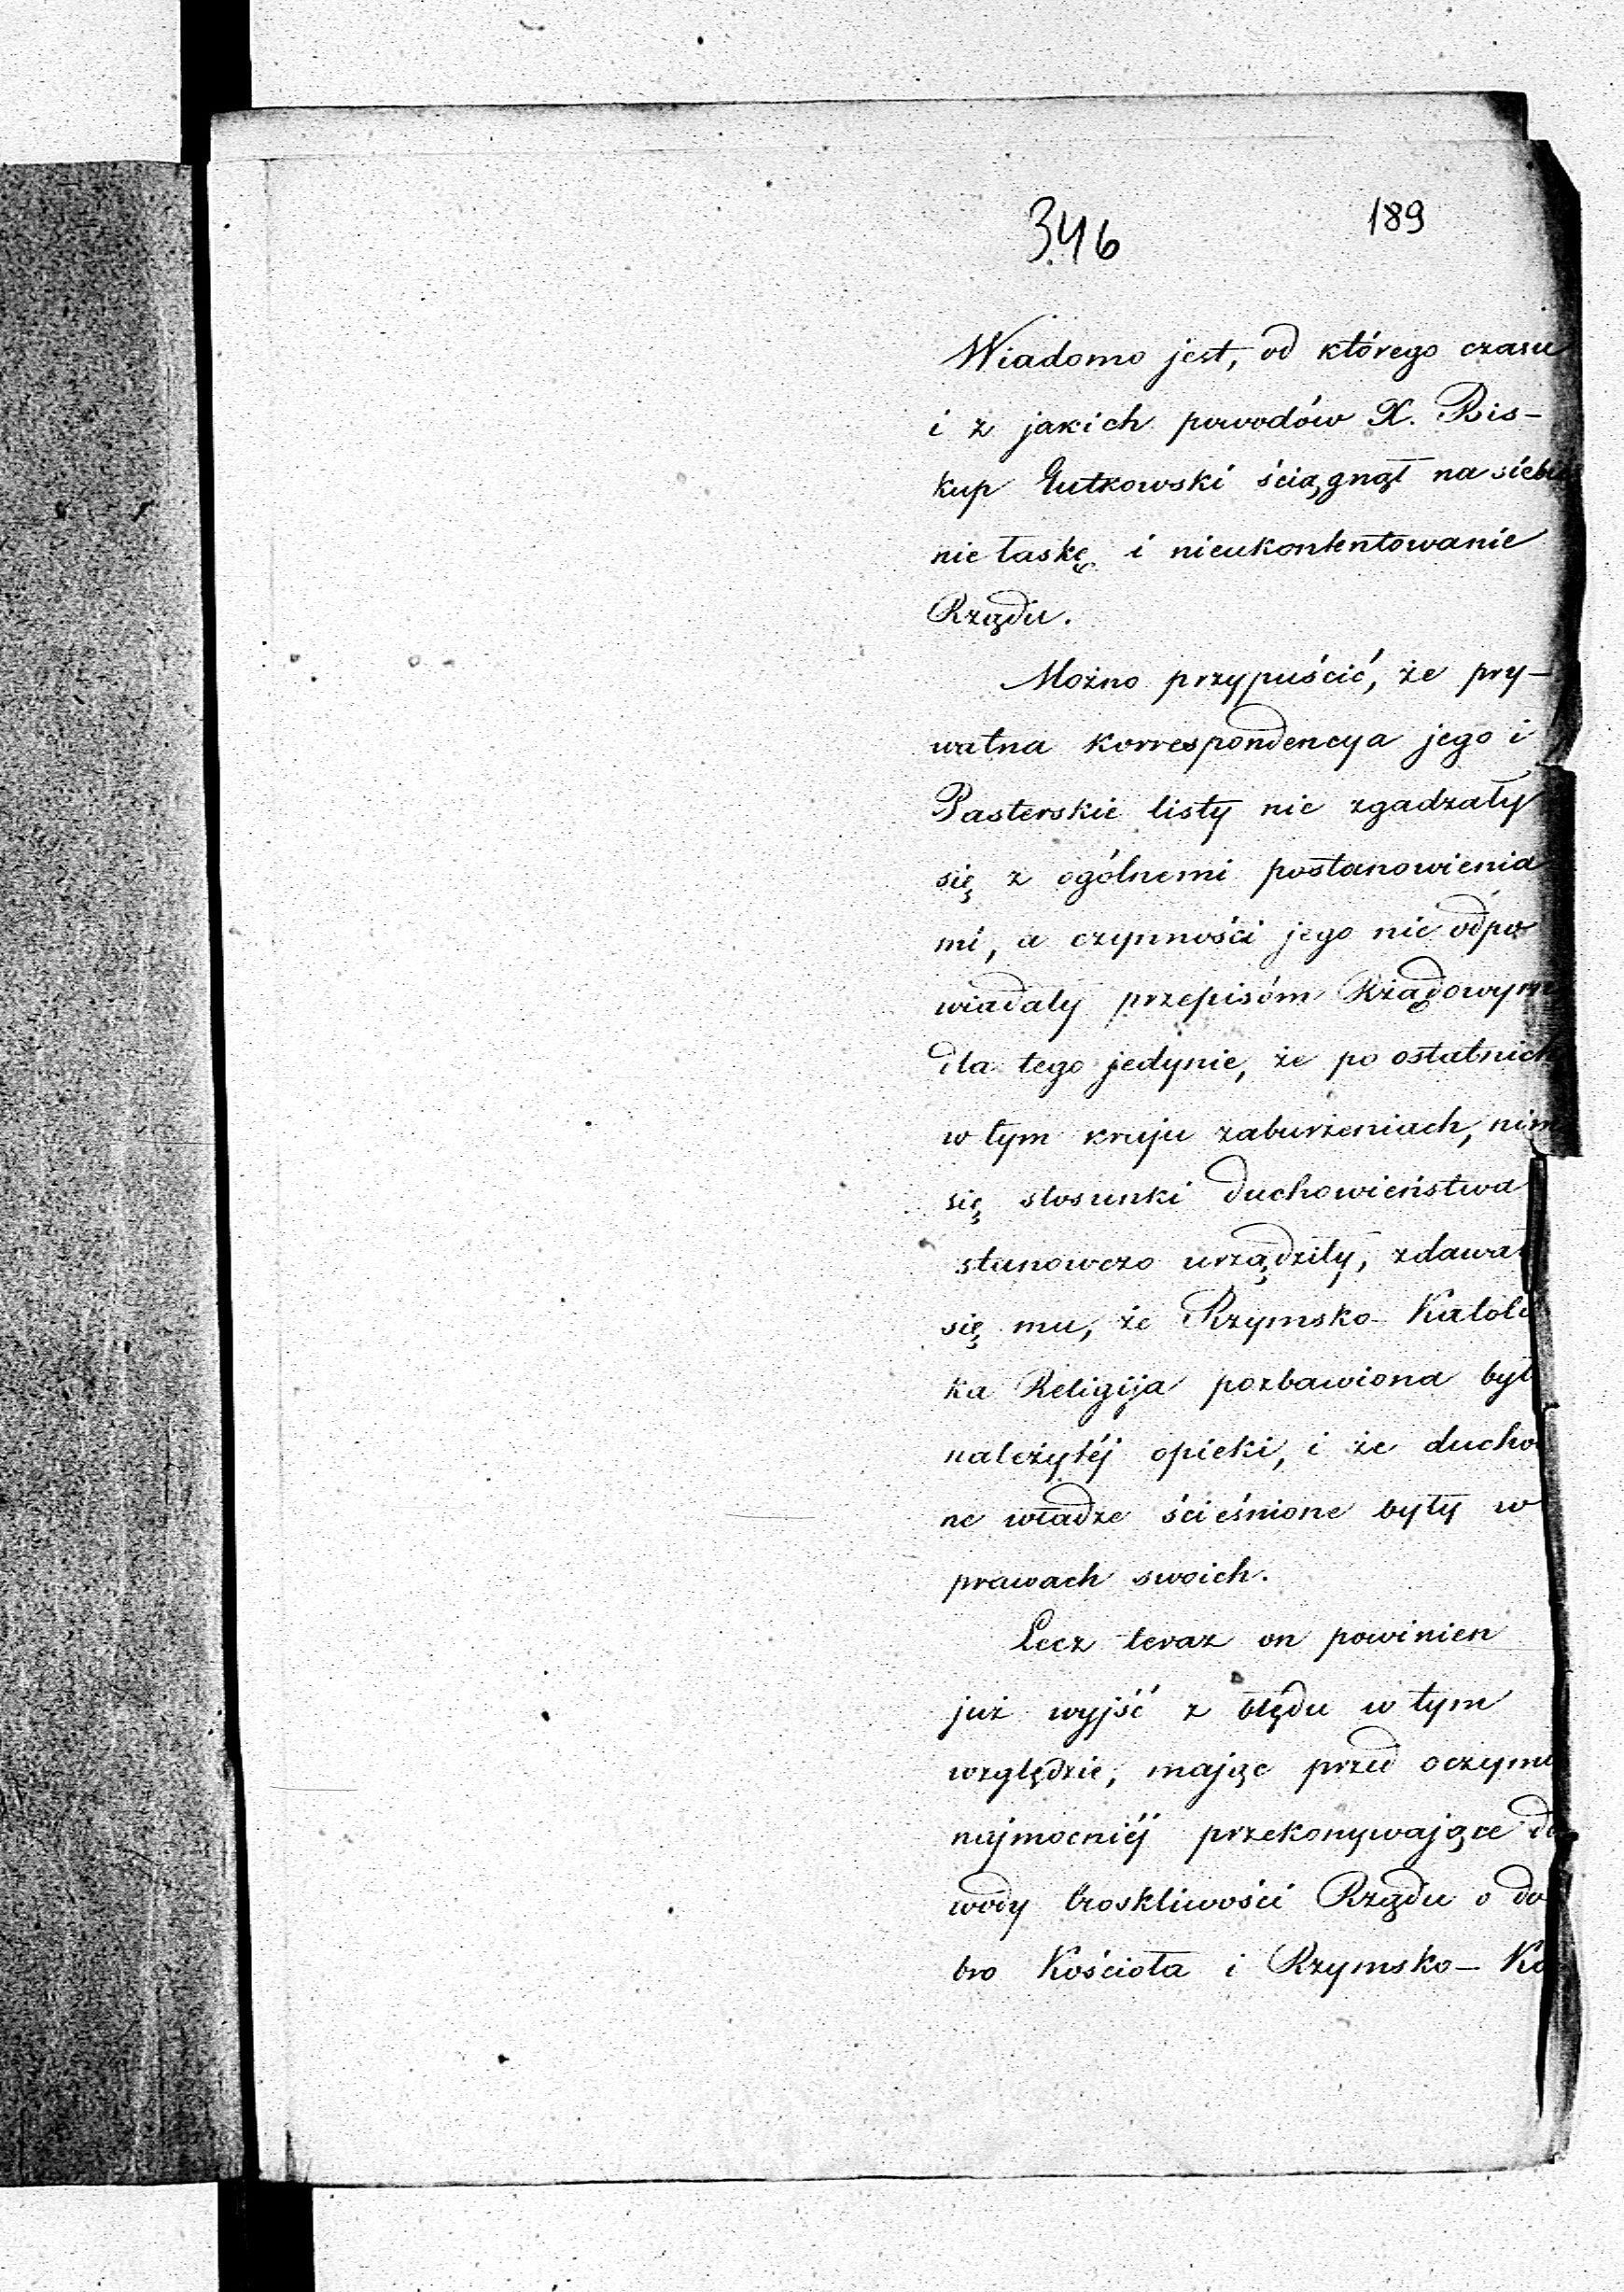 346 189
Wiadomo jest, od którego czasu
i z jakich powodów X. Bis-
kup Gutkowski ściągnął na siebie
niełaskę i nieukontentowanie
Rządu.
Możno przypuścić, że pry-
watna korrespondencya jego i
Pasterskie listy nie zgadzały
się z ogólnemi postanowienia
mi, a czynności jego nie odpo
wiadały przepisóm Rządowym
dla tego jedynie, że po ostatnich
w tym kraju zaburzeniach, nim
się stosunki duchowieństwa
stanowczo urządziły, zdawał
się mu, że Rzymsko-Katoli
ka Religija pozbawiona był
należytéj opieki, i że ducho
ne władze ścieśnione były w
prawach swoich.
Lecz teraz on powinien
już wyjść z błędu w tym
względzie, mając przed oczyma
najmocniéj przekonywające do
wody troskliwości Rządu o do
bro Kościoła i Rzymsko-Ka